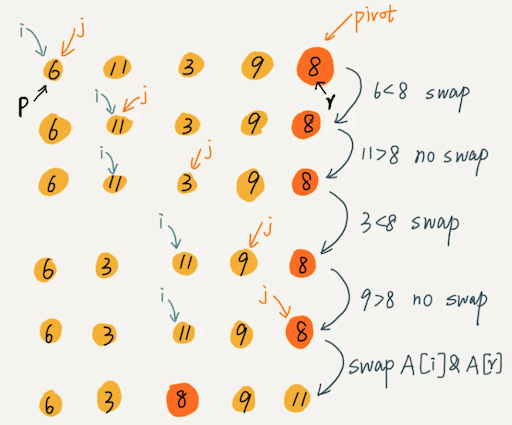 i j pivot
6 11 3 9 8
p r
6<8 swap
i j
6 11 3 9 8
11>8 no swap
i j
6 11 3 9 8
3<8 swap
i j
6 3 11 9 8
9>8 no swap
i j
6 3 11 9 8
swap A[i]&A[r]
6 3 8 9 11